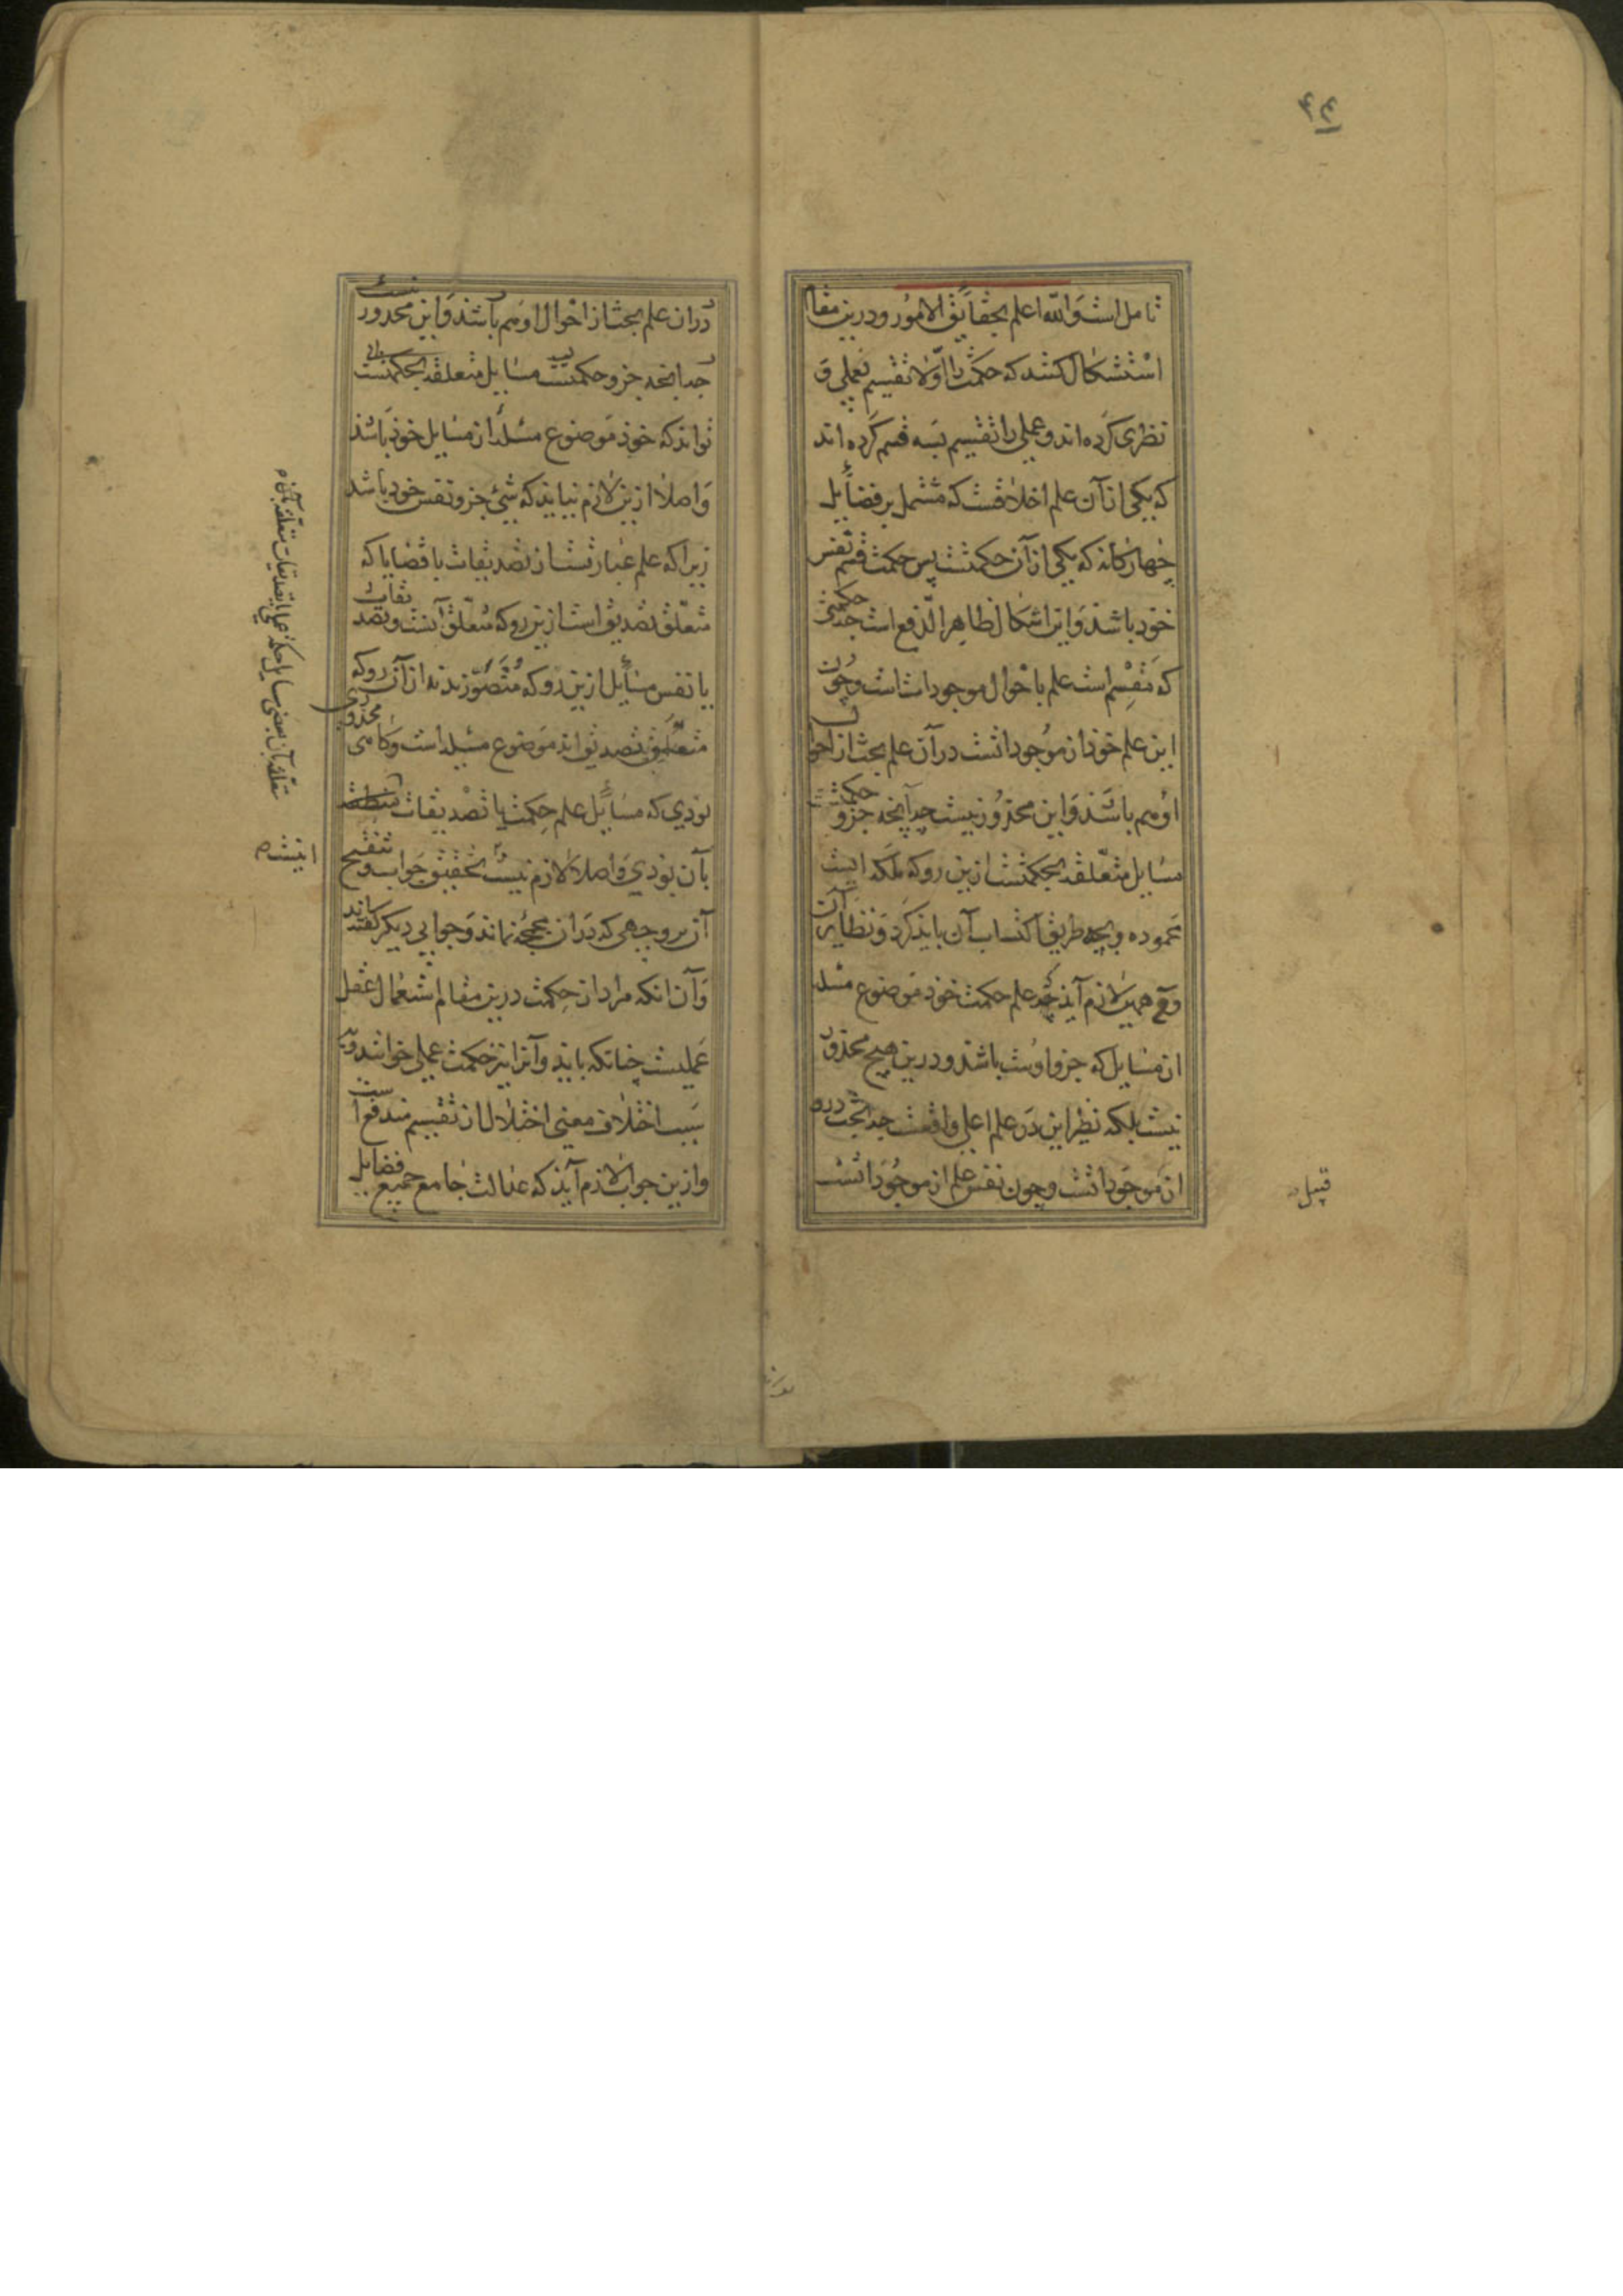 ۴۴
تامل است والله اعلم بحقایق الامور و درین مقام
استشکال کنند که حکمت را اولا تقسیم بعملی و
نظری کرده اند و عملی را تقسیم بسه قسم کرده اند
که یکی از آن علم اخلاقست که مشتمل بر فضایل
چهارکانه که یکی از آن حکمتست پس حکمت قسم نفس
خود باشد و این اشکال ظاهر الدفع است چه حکمتی
که مقسم است علم باحوال موجودات است و چون
این علم خود از موجوداتست در آن علم بحث از احوال
او هم باشد و این محذور نیست چه آنچه جزو حکمتست
مسایل متعلقه بحکمتست ازین رو که ملکه ایست
محموده و بچه طریق اکتساب آن باید کرد و نظایر آن
همین لازم آید که علم حکمت خود موضوع مسئله
از مسایل که جزو اوست باشد و درین هیچ محذور
نیست بلکه نظیر این در علم اعلی واقعست چه بحث درو
از موجوداتست و چون نفس علم از موجوداتست
قیل
در ان علم بحث از احوال او هم باشد و این محذور نیست
چه آنچه جزو حکمتست مسایل متعلقه بحکمتست
تواند که خود موضوع مسئله از مسایل خود باشد
و اصلا ازین لازم نیاید که شیء جزو نفس خود باشد
زیرا که علم عبارتست از تصدیقات یا قضایا که
متعلق تصدیق است ازین رو که متعلق آنست و تصدیقات
یا نفس مسایل ازین رو که متصورند نه از آن رو که
متعلق تصدیق اند موضوع مسئله است و کاه محذوری
بودی که مسایل علم حکمت یا تصدیقات
بآن بودی و اصلا لازم نیست تحقیق جواب و تنقیح
آن بر وجهی که در ان مجمجه نماند و جوابی دیکر کفته اند
و آن انکه مراد از حکمت درین مقام استعمال عقل
عملیست چنانکه باید و آنرا نیز حکمت عملی خوانند و به
سبب اختلاف معنی اختلال از تقسیم مندفع است
و ازین جواب لازم آید که عدالت جامع جمیع فضایل